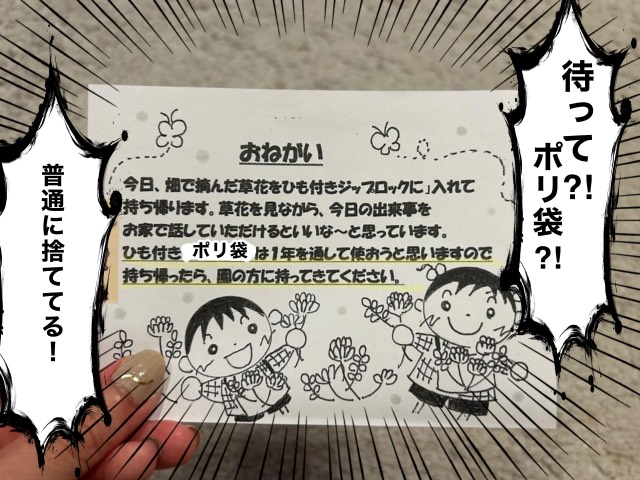 待って?!
ポリ袋?!
おねがい
今日、畑で摘んだ草花をひも付きジップロックに」入れて
持ち帰ります。草花を見ながら、今日の出来事を
お家で話していただけるといいな～と思っています。
ひも付き ポリ袋 は1年を通して使おうと思いますので
持ち帰ったら、園の方に持ってきてください。
普通に捨ててる!